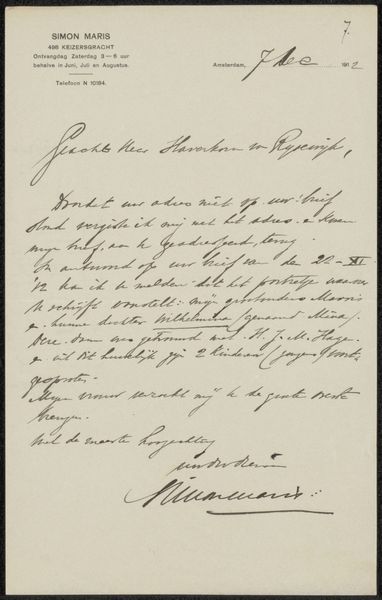 7.
SIMON MARIS
498 KEIZERSGRACHT
Ontvangdag Zaterdag 3—6 uur
behalve in Juni, Juli en Augustus.
Telefoon N 10184.
Amsterdam, 7 Dec 1912
Geachte Heer Haverkorn v. Rijsewijk,
Doordat uw adres niet op uw brief
stond vergiste ik mij met het adres en kwam
mijn brief, aan U geadresseerd, terug.
In antwoord op uw brief van den 22-XI-
'12 kan ik U melden dat het portretje waarover
U schrijft voorstelt: mijn grootouders Maris
en hunne dochter Wilhelmina (genaamd Mina).
Deze was getrouwd met H. J. M. Hage
en uit dit huwelijk zijn 2 kinderen (jongens)
gesproten.
Mijn vrouw verzocht mij U de groeten
brengen.
Met de meeste hoogachting
uw dw dienaar
Simon Maris.